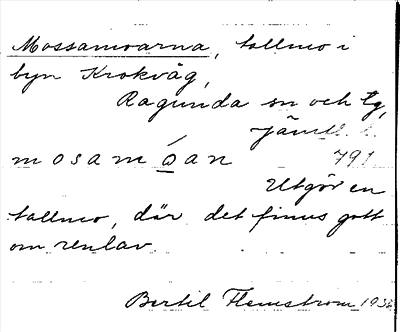 Mossamoarna, tallmo i
byn Krokvåg,
Ragunda sn och tg,
Jämtl. l.
mosamóan 791
Utgör en
tallmo, där det finns gott
om renlav.
Bertil Flemström